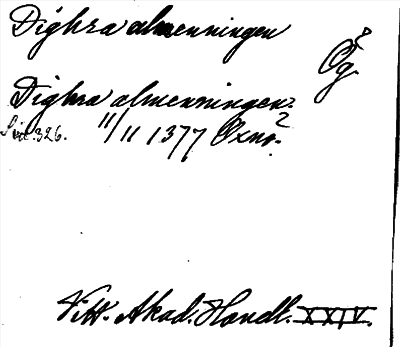 Dighra almenningen
Ög.
Dighra almenningen
Sid. 326. 11/11 1377 Oxnö.
Vitt. Akad. Handl. XXIV.